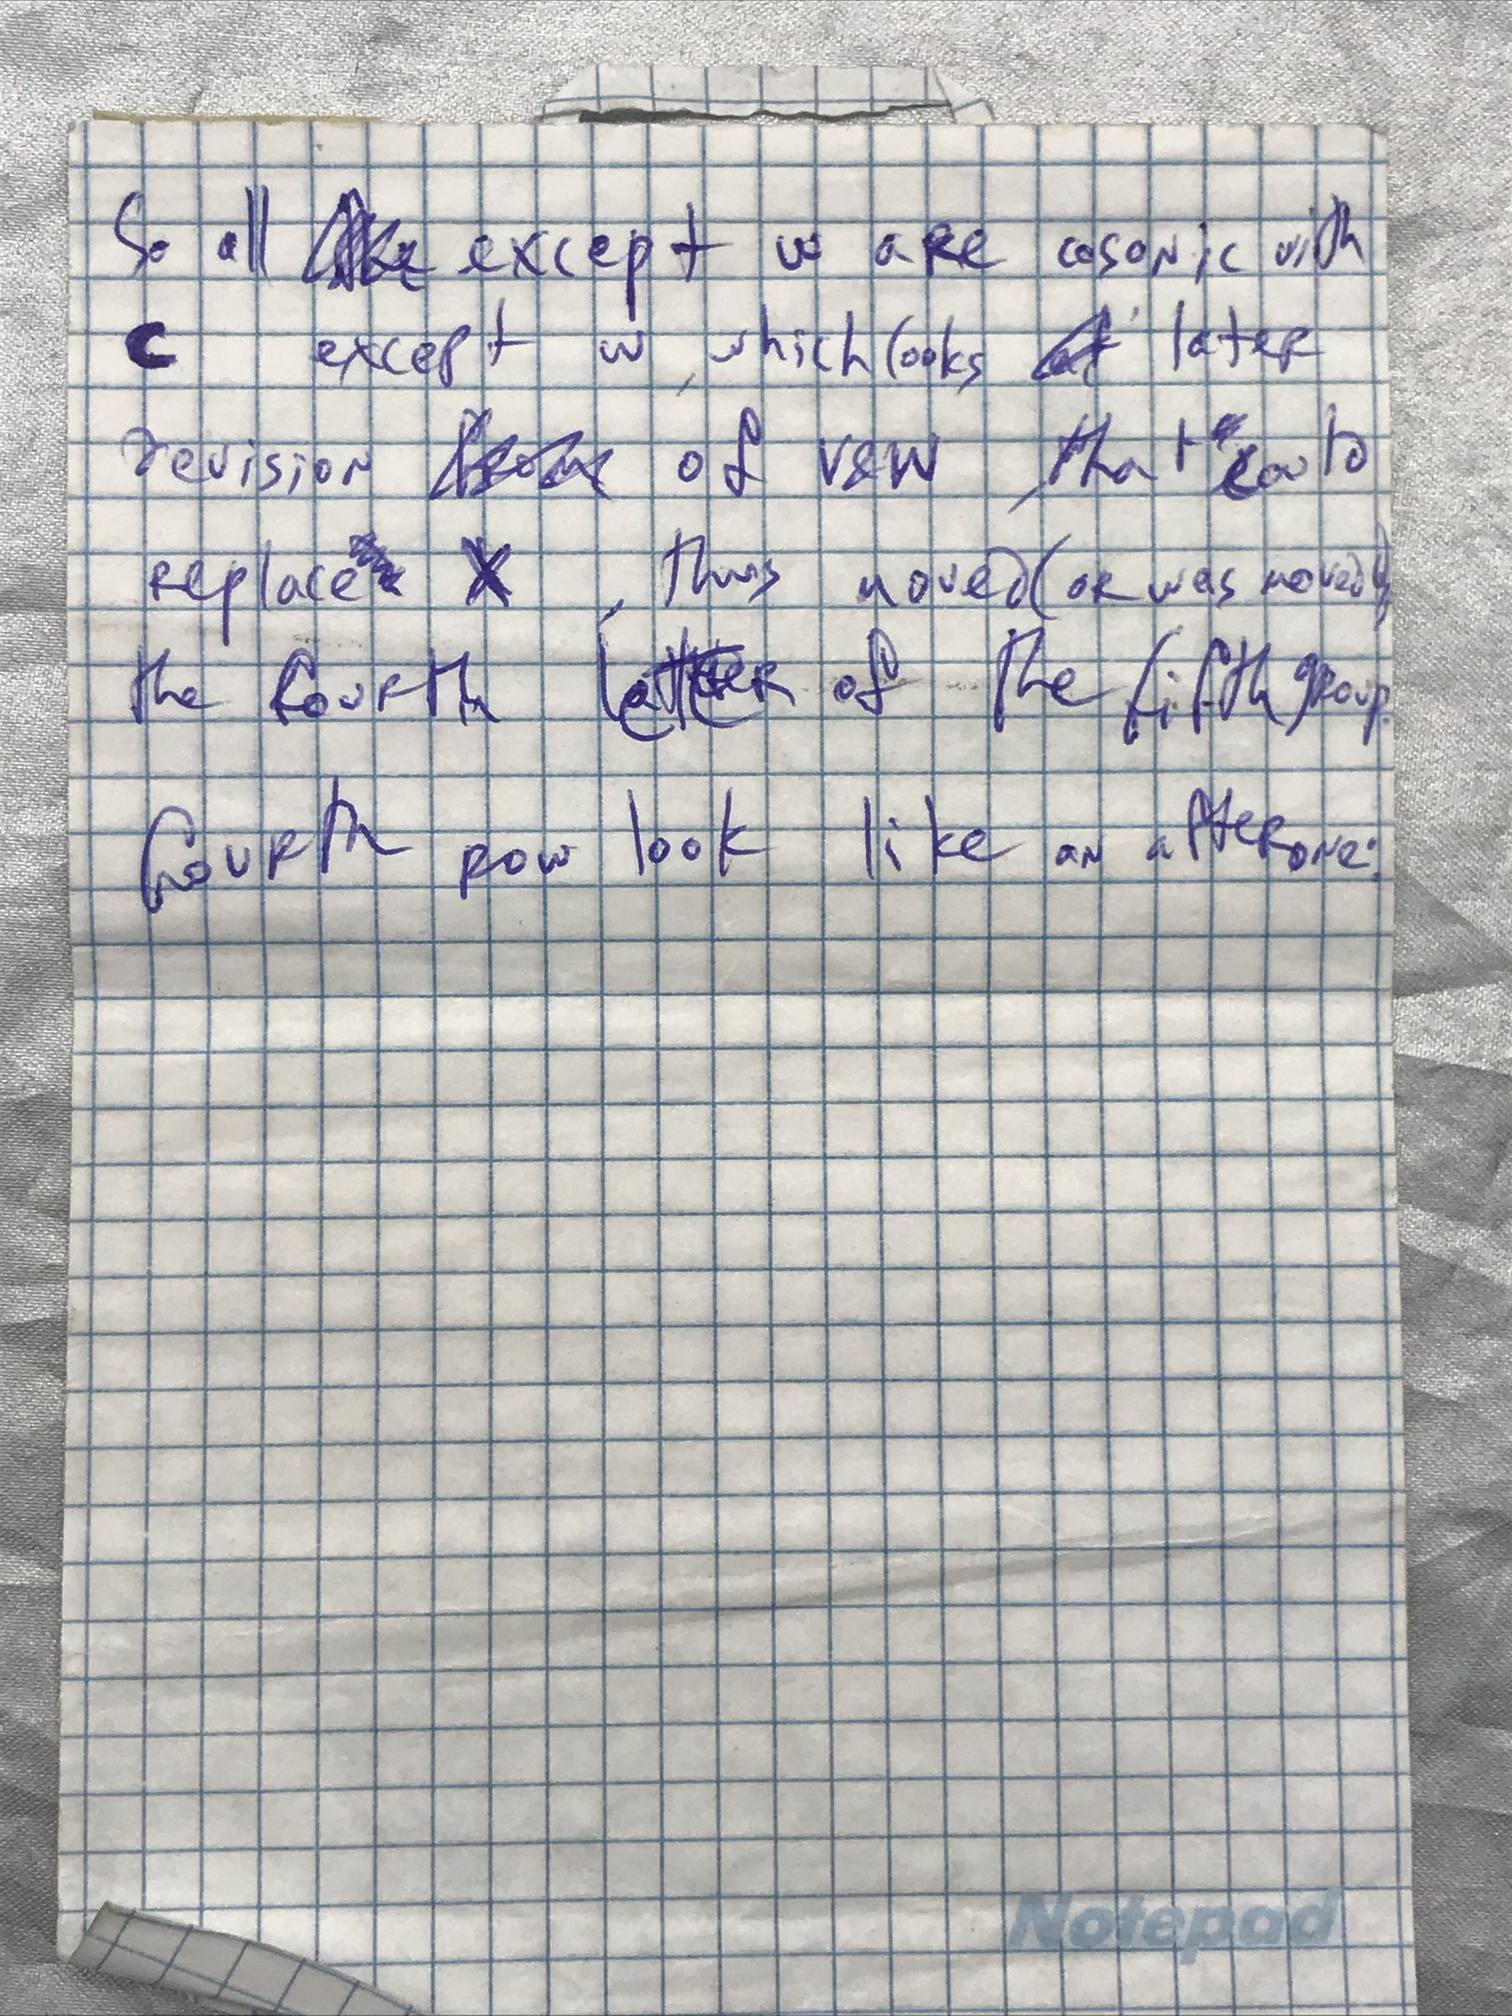 So all except w are cosonic with
C except w, which looks later
revision of v&w, that
replace X, thus moved (or was moved),
the fourth letter of the fifth group.
fourth row look like an after one:
Notepad